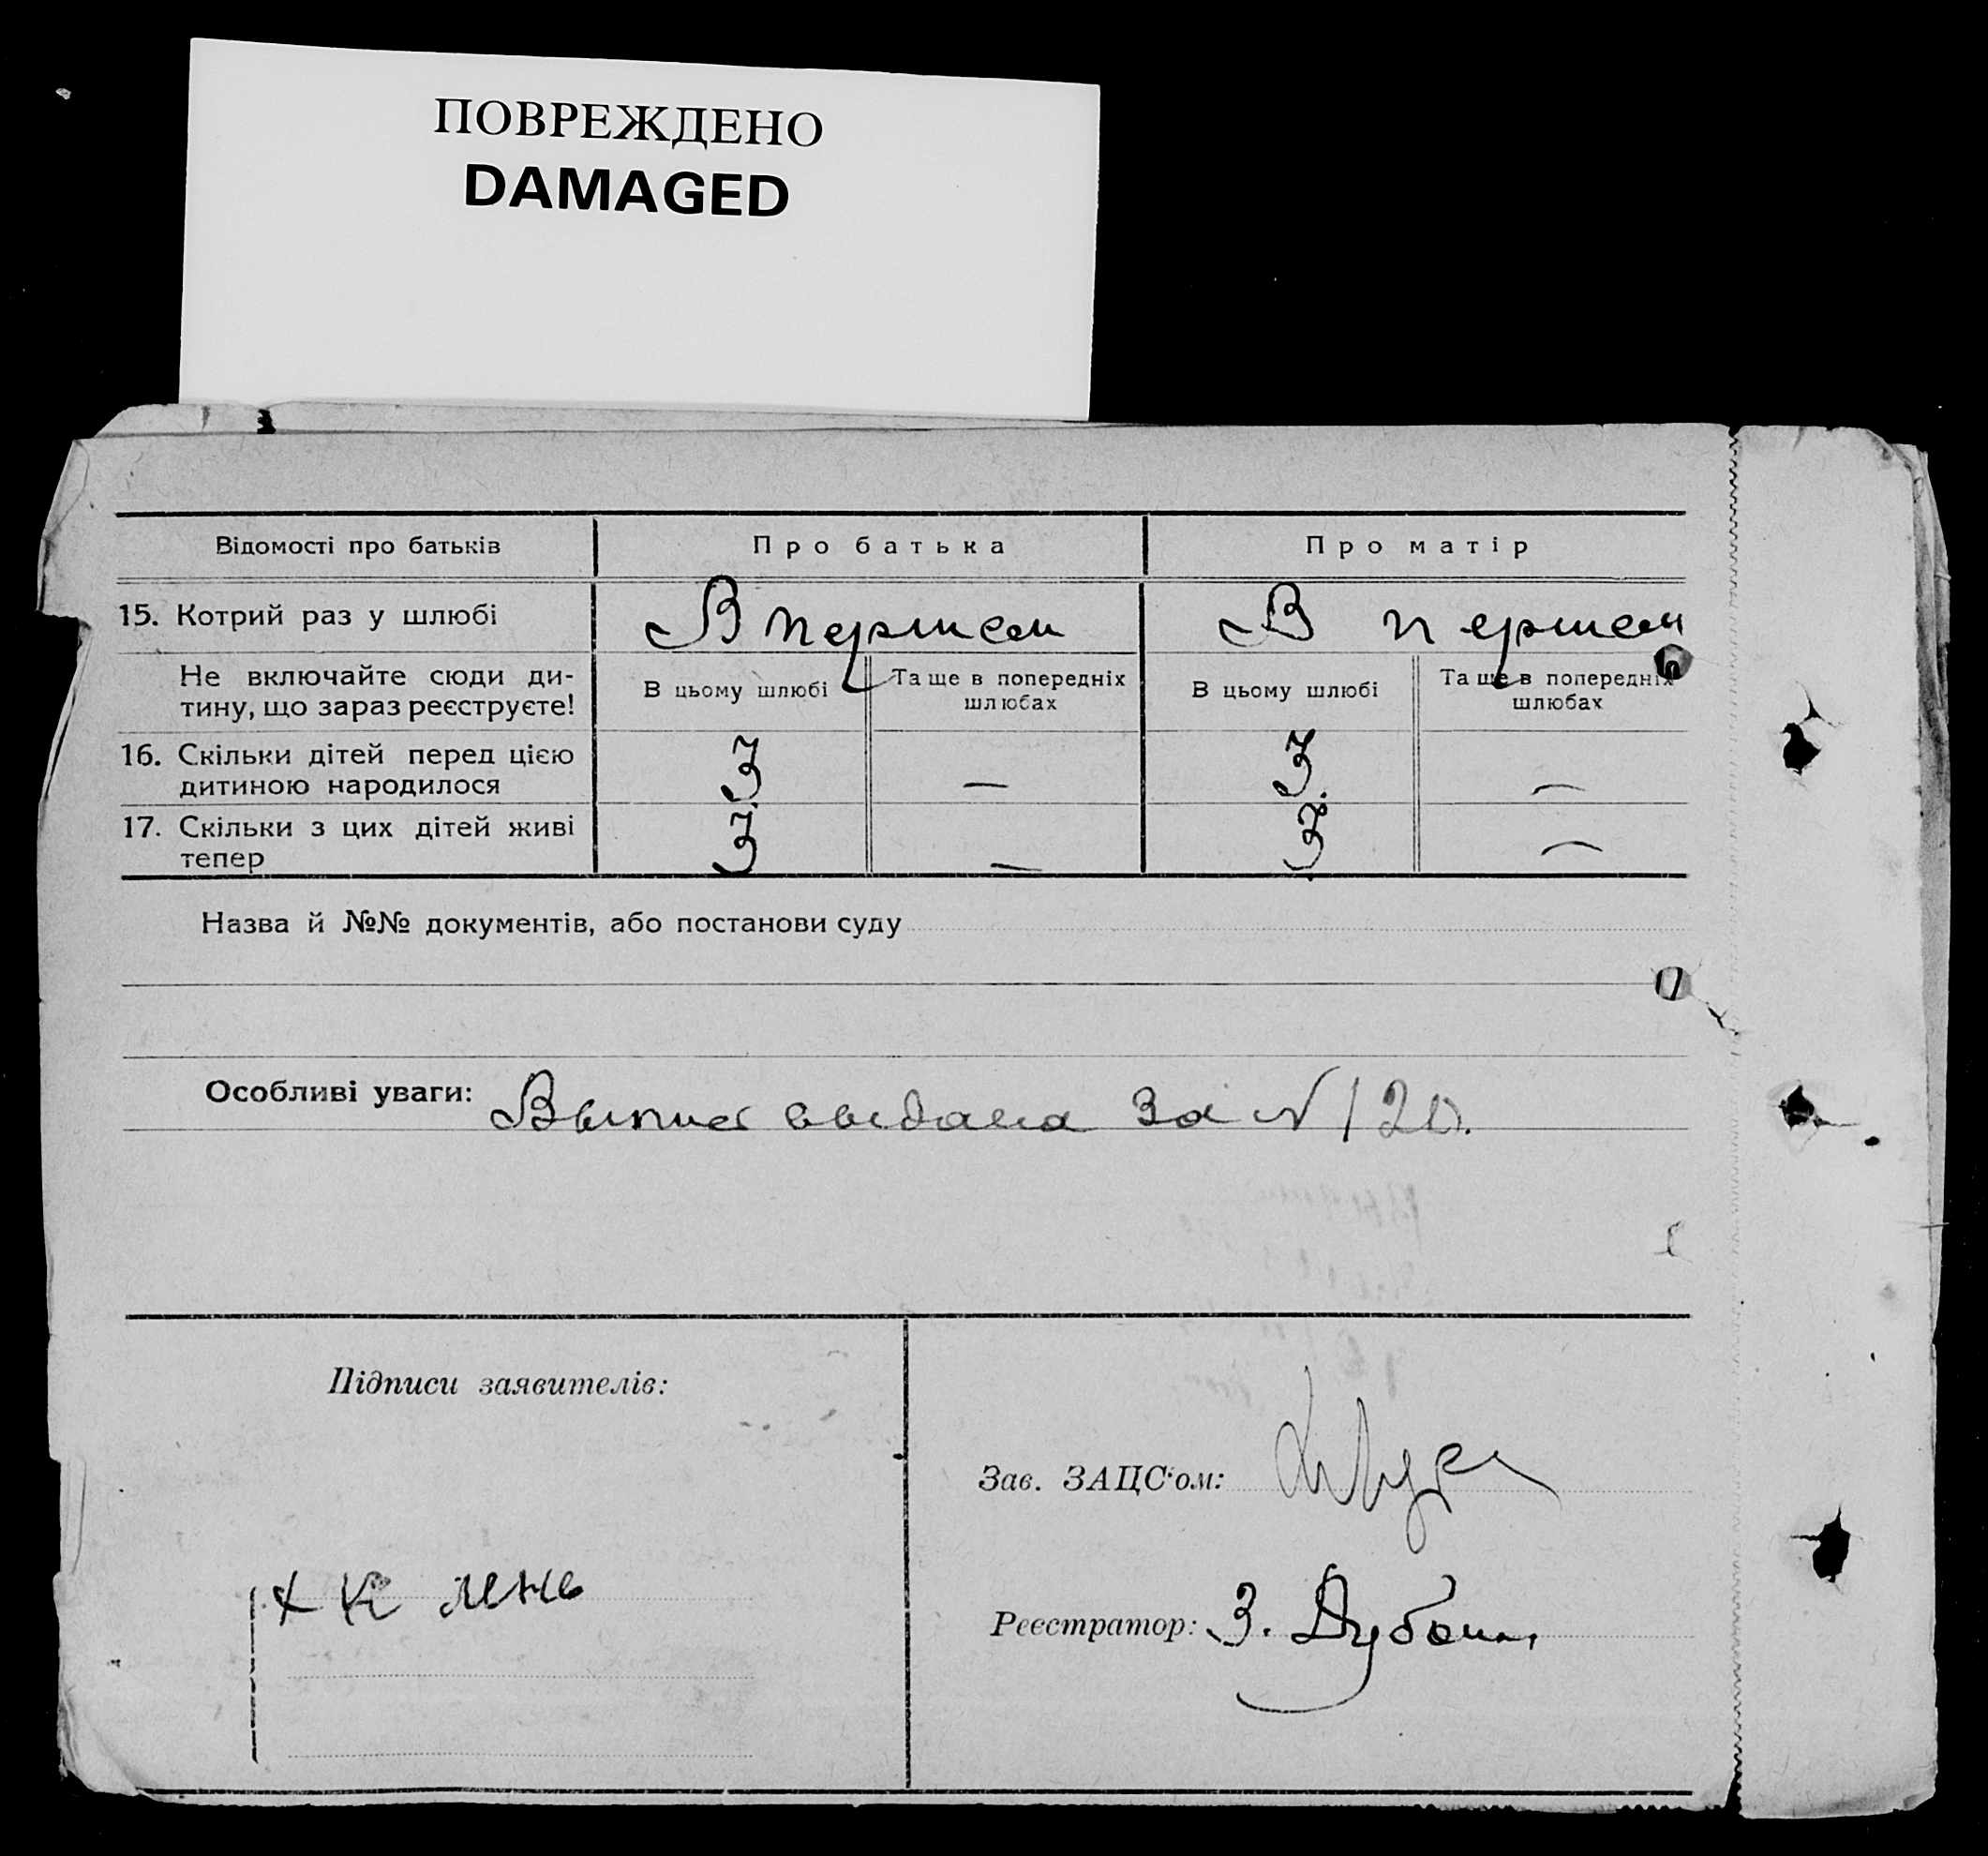 ПОВРЕЖДЕНО
DAMAGED
Відомості про батьків
Про батька
Про матір
15. Котрий раз у шлюбі
В першем
В першем
Не включайте сюди ди-
тину, що зараз реєструєте!
В цьому шлюбі
Та ще в попередніх
шлюбах
В цьому шлюбі
Та ще в попередніх
шлюбах
16. Скільки дітей перед цією
дитиною народилося
3
—
3.
—
17. Скільки з цих дітей живі
тепер
3
—
3
—
Назва й №№ документів, або постанови суду
Особливі уваги: выдана за N 120.
Підписи заявителів:
Зав. ЗАЦС'ом:
+ К
Реєстратор: З.